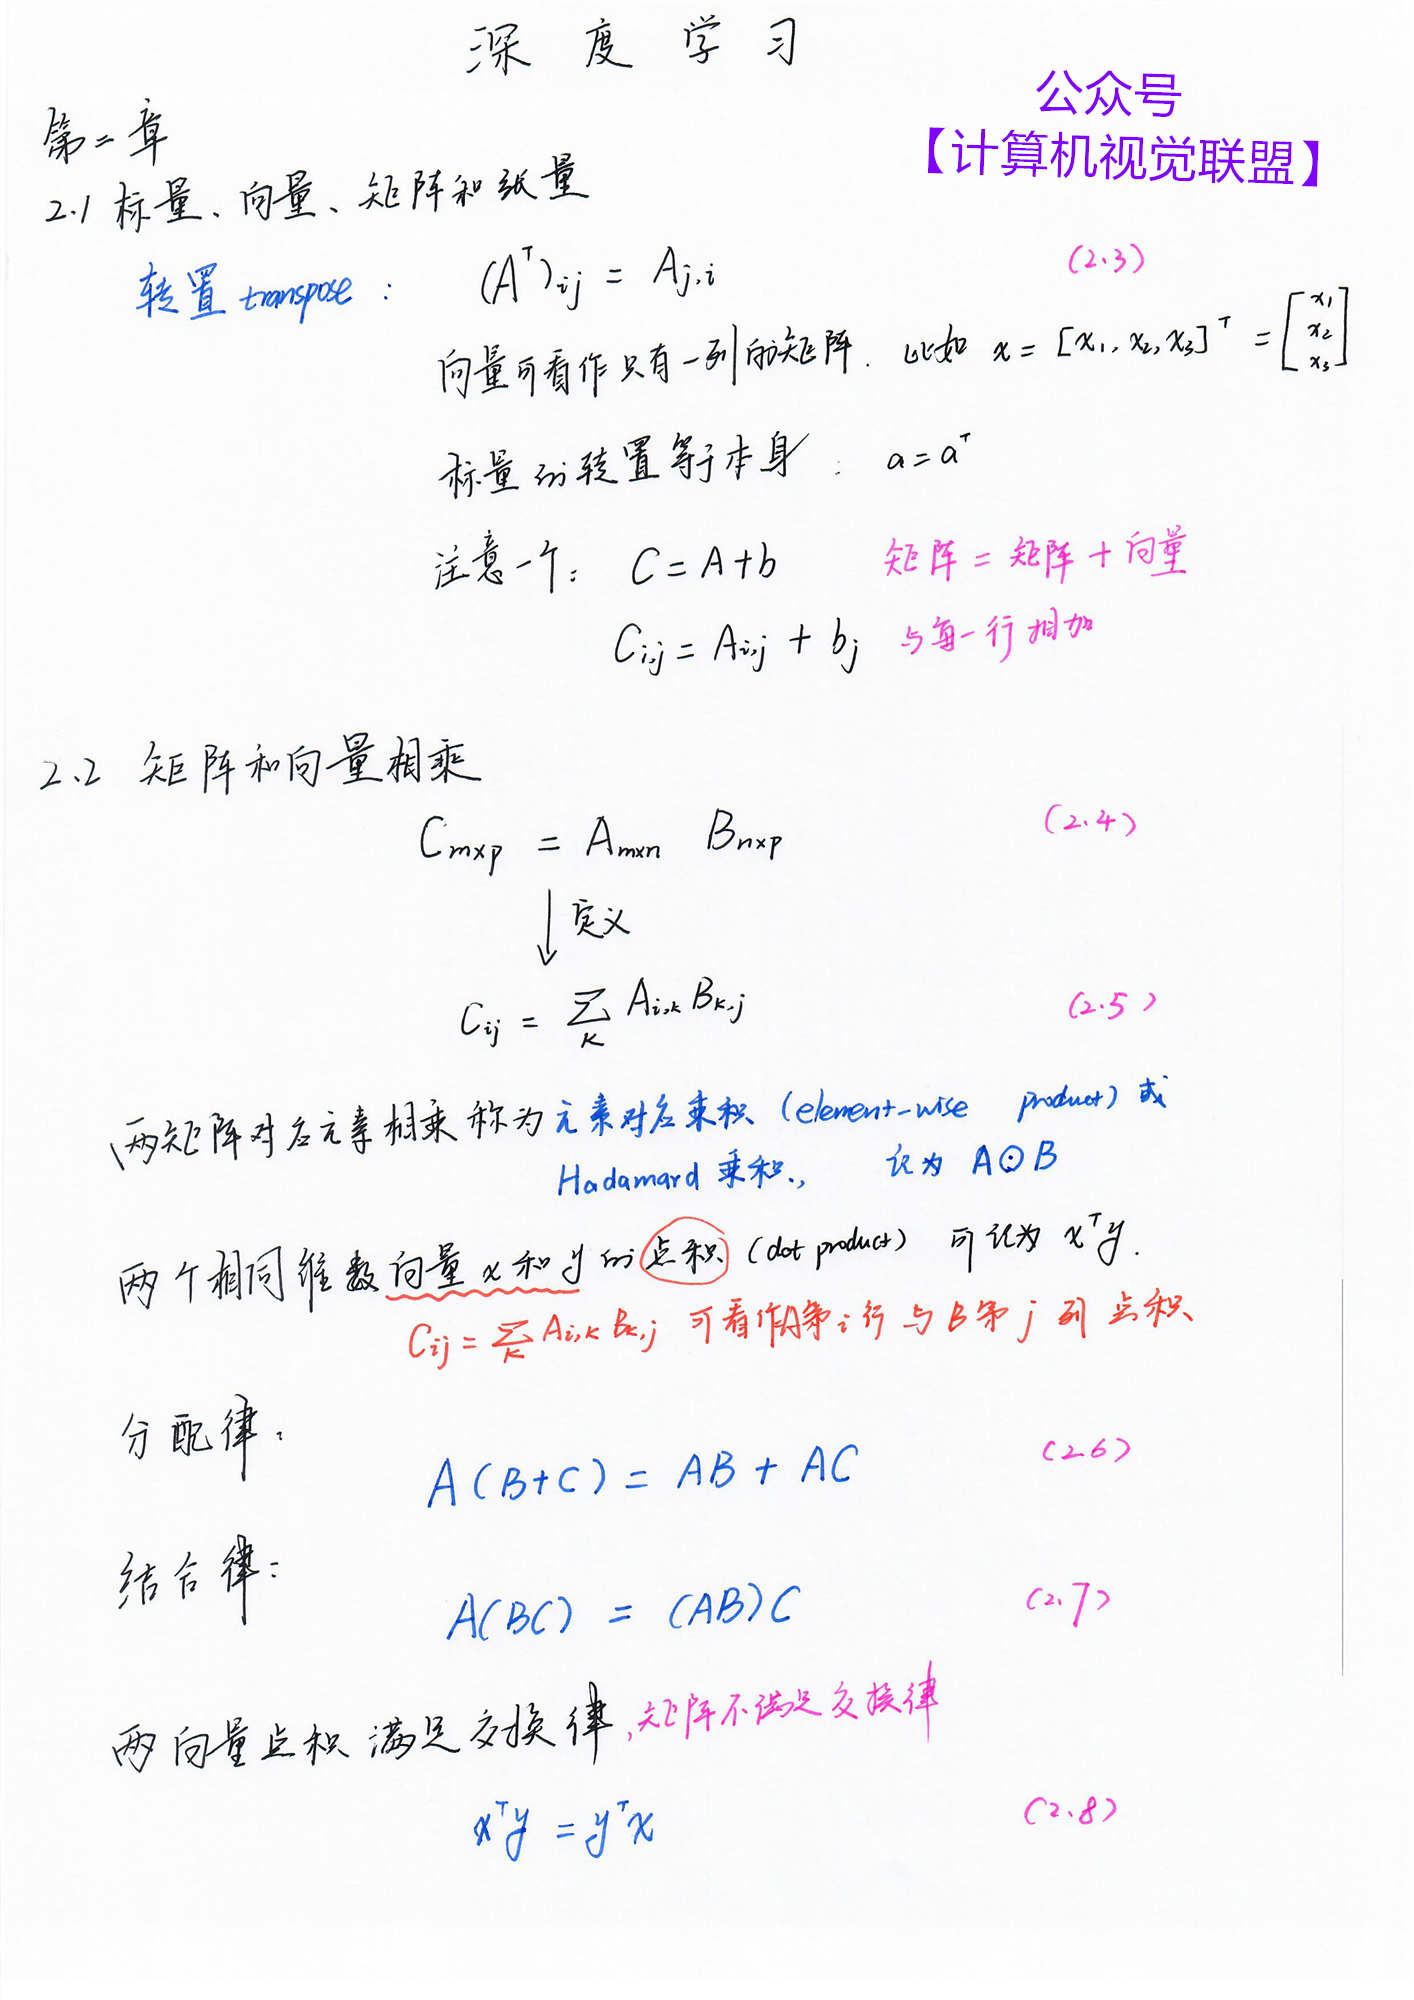 深度学习
公众号
【计算机视觉联盟】
第二章
2.1 标量、向量、矩阵和纸量
转置 transpose: (A^T)ij = Aj,i (2.3)
向量可看作只有一列的矩阵. 比如 x = [x1, x2, x3]^T = [x1 x2 x3]
标量的转置等于本身: a = a^T
注意一个: C = A + b 矩阵 = 矩阵 + 向量
Ci,j = Ai,j + bj 与每一行相加
2.2 矩阵和向量相乘
Cm×p = Am×n Bn×p (2.4)
↓ 定义
Cij = ∑k Ai,k Bk,j (2.5)
两矩阵对应元素相乘称为元素对应乘积 (element-wise product) 或
Hadamard 乘积, 记为 A⊙B
两个相同维数向量 x 和 y 的点积 (dot product) 可记为 x^T y.
Cij = ∑k Ai,k Bk,j 可看作A第i行与B第j列点积
分配律:
A(B+C) = AB + AC (2.6)
结合律:
A(BC) = (AB)C (2.7)
两向量点积满足交换律, 矩阵不满足交换律
x^T y = y^T x (2.8)